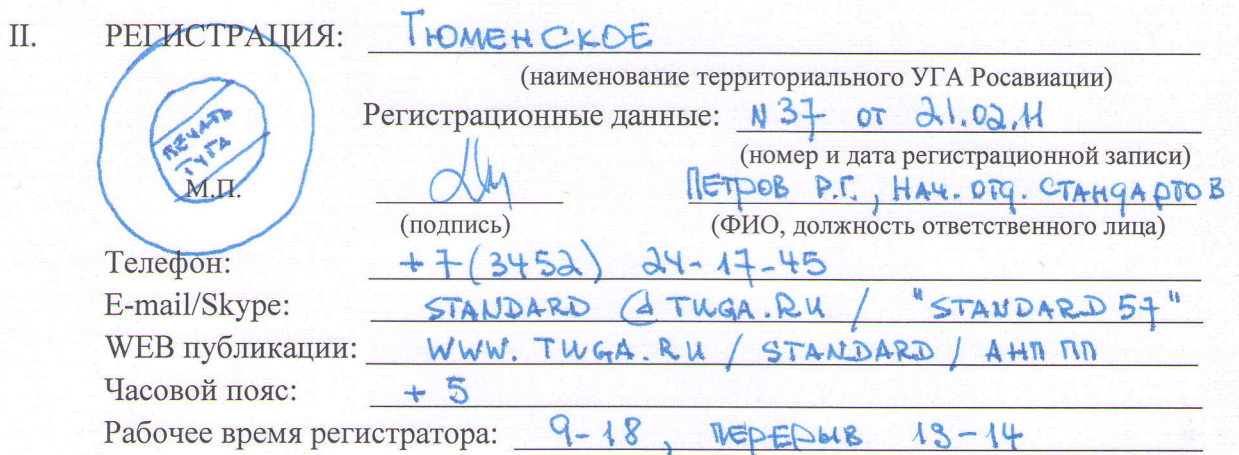 II. РЕГИСТРАЦИЯ: ТЮМЕНСКОЕ
(наименование территориального УГА Росавиации)
Регистрационные данные: N 37 от 21.02.11
(номер и дата регистрационной записи)
ПЕЧАТЬ
ТУГА
М.П.
ПЕТРОВ Р.Г., НАЧ. ОТД. СТАНДАРТОВ
(подпись) (ФИО, должность ответственного лица)
Телефон: +7(3452) 24-17-45
E-mail/Skype: STANDARD @ TUGA.RU / "STANDARD 57"
WEB публикации: WWW. TUGA.RU / STANDARD / АНП ПП
Часовой пояс: + 5
Рабочее время регистратора: 9-18, ПЕРЕРЫВ 13-14